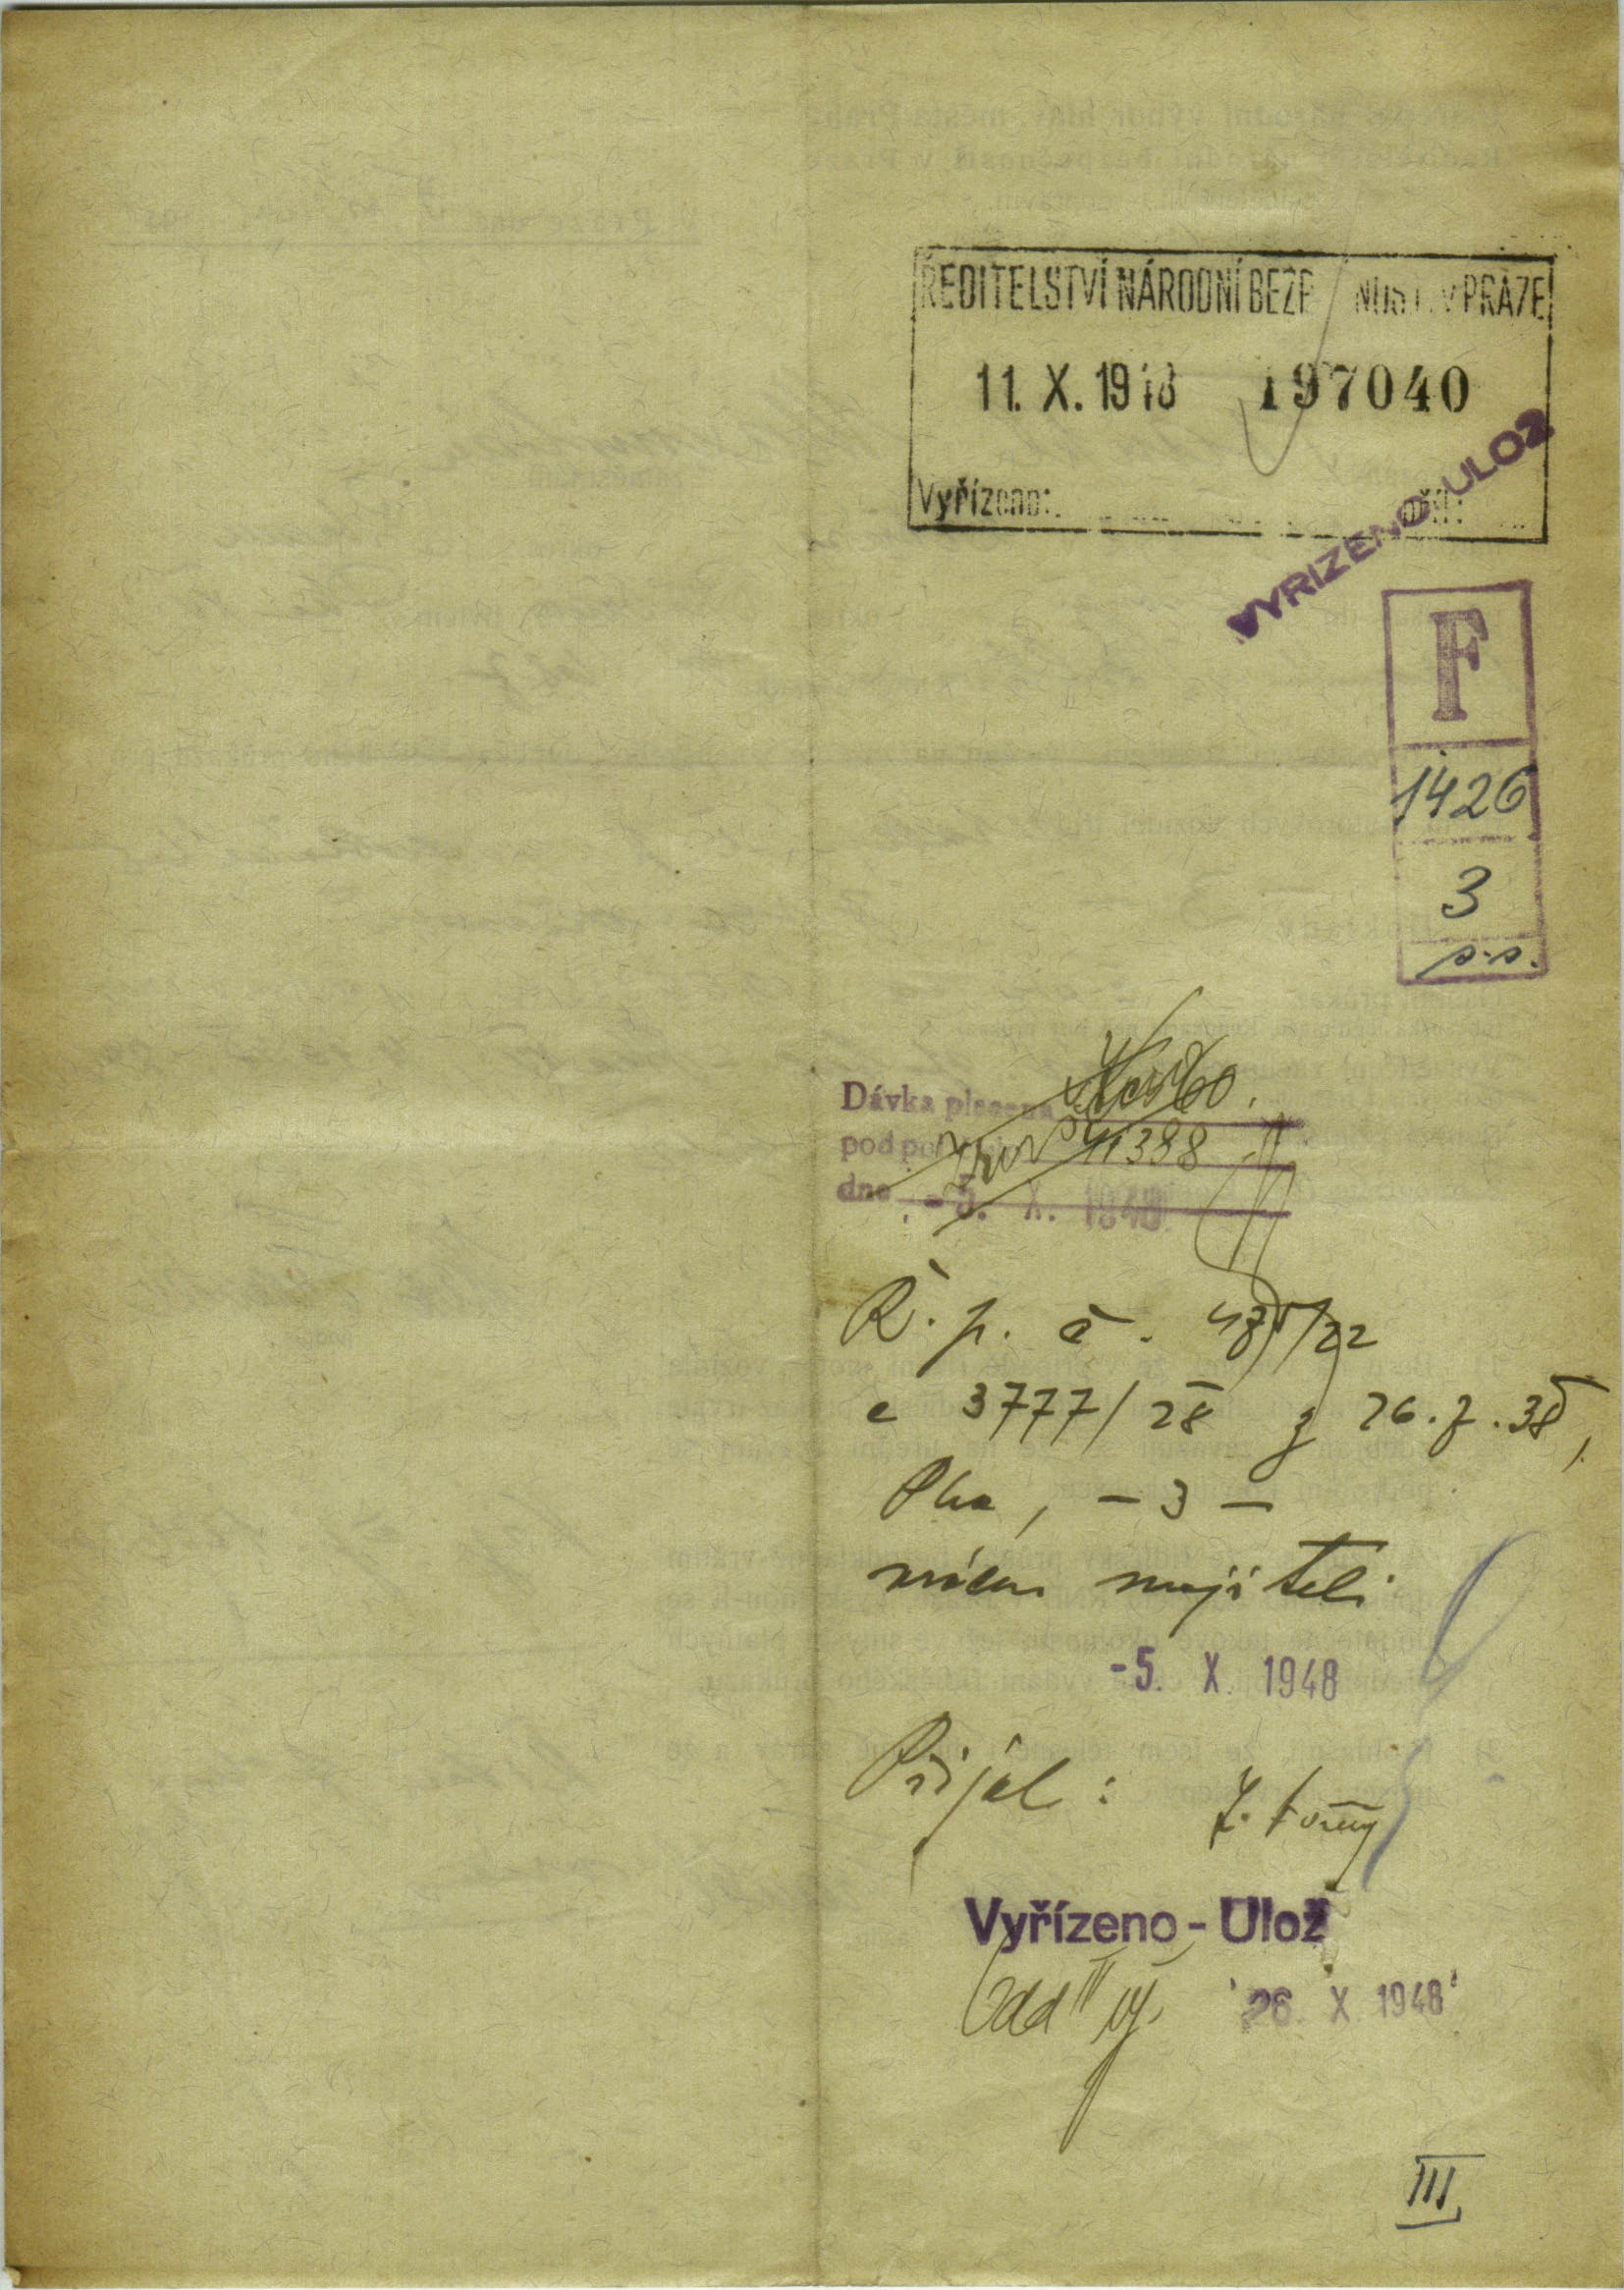 ŘEDITELSTVÍ NÁRODNÍ BEZP NOSTI V PRAZE
11. X. 1948 197040
Vyřízeno:
VYRIZENO ULOZ
F
1426
3
s.s.
Dávka placena
pod pol 41388
dne -5. X. 1948
Ř. p. č.
3777/28 z 26.7.38,
Pha, – 3 –
vrácen majiteli
-5. X. 1948
Přijal:
Vyřízeno - Ulož
26. X 1948
III